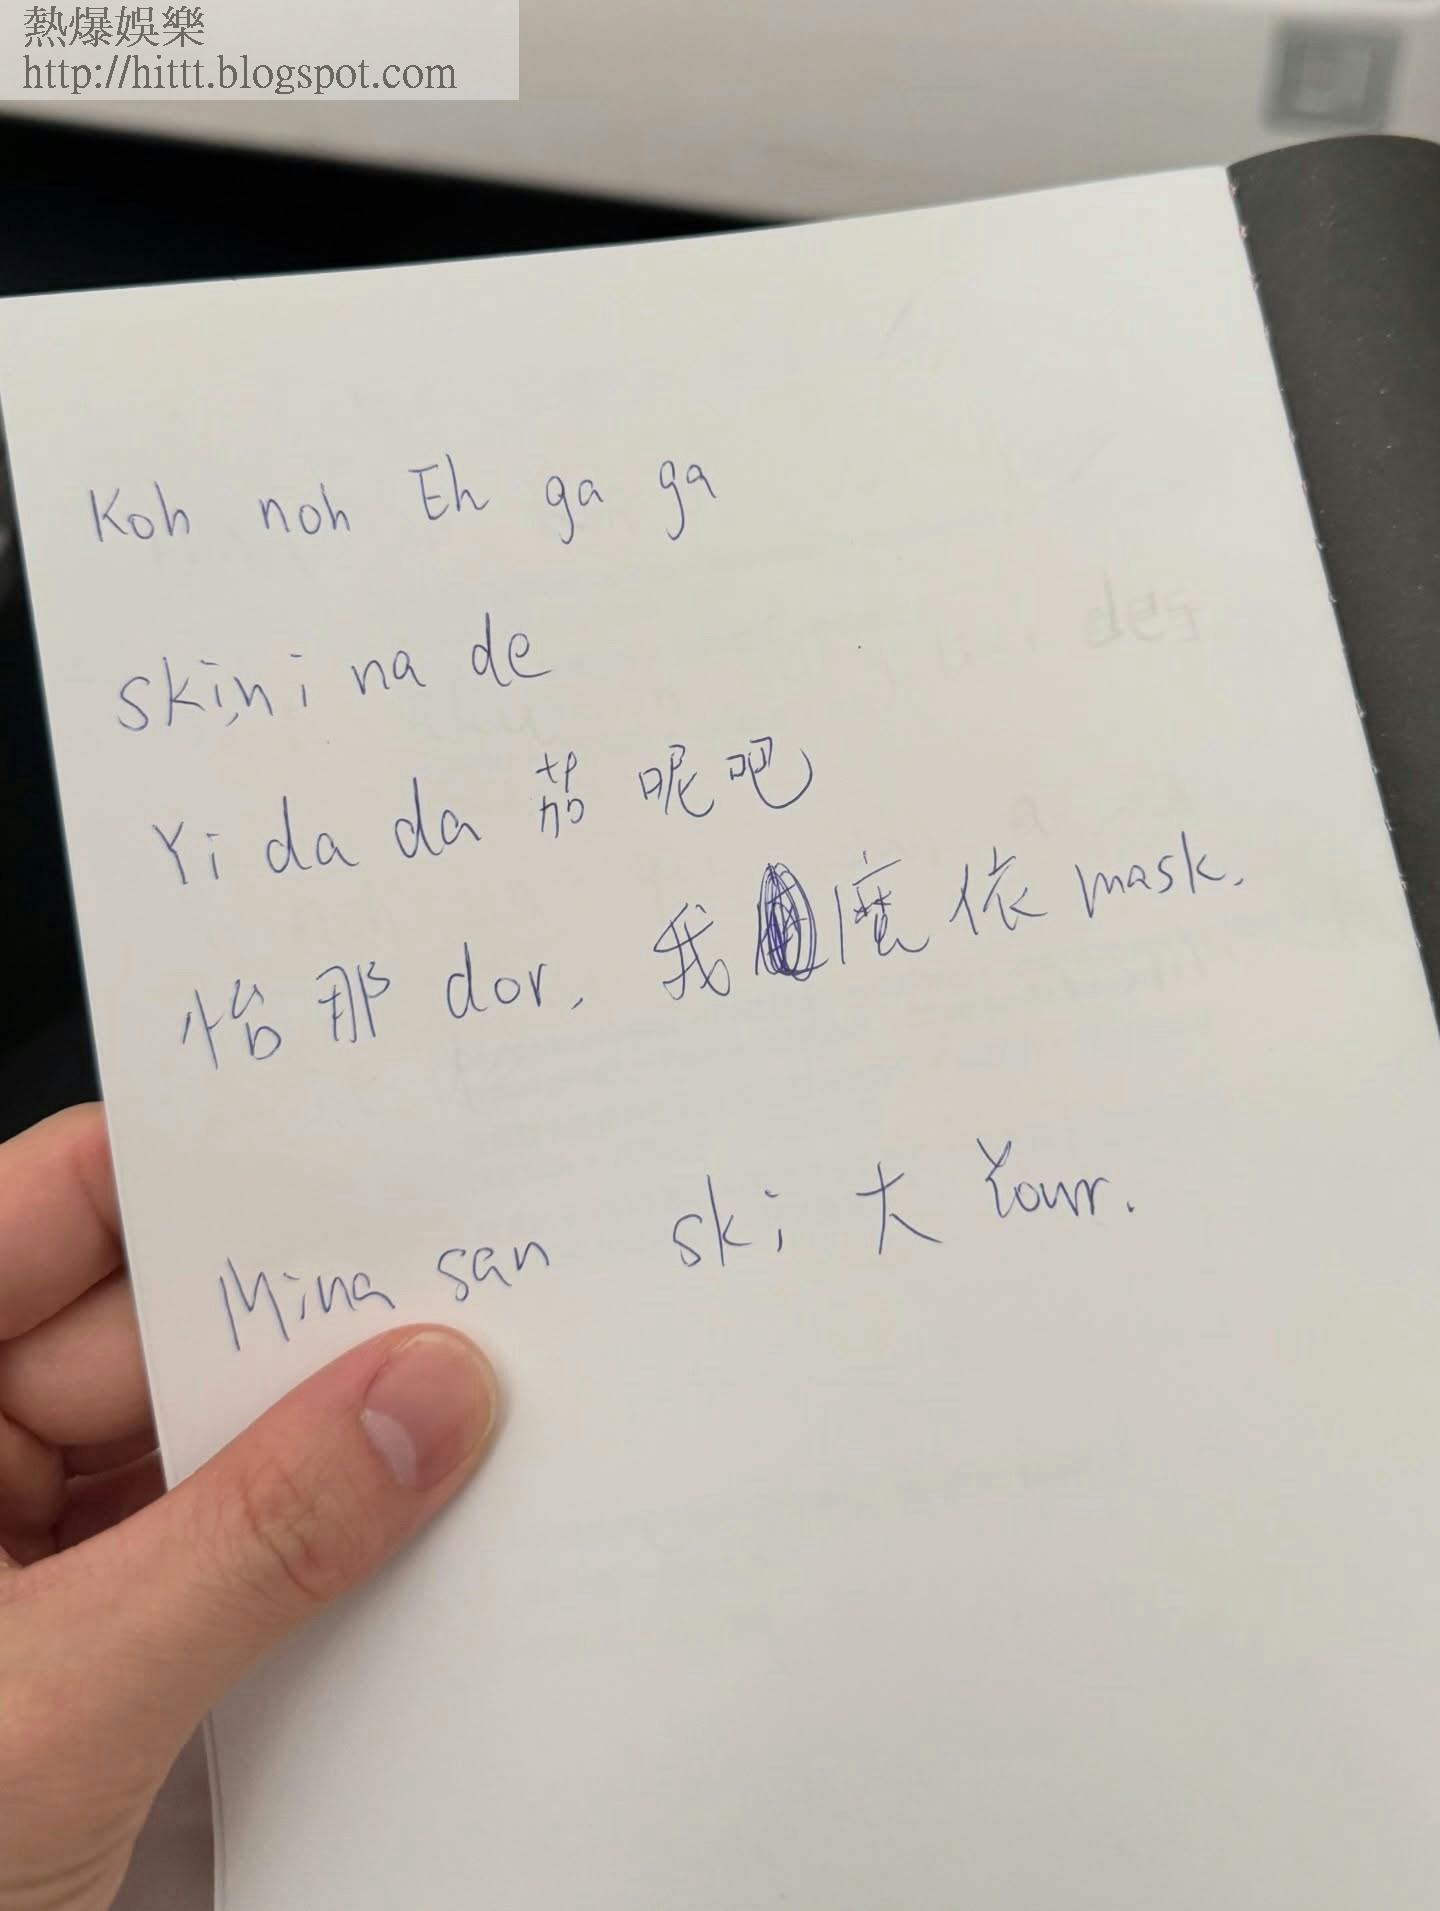 熱爆娛樂
http://hittt.blogspot.com
Koh noh Eh ga ga
skini na de
Yi da da 茄 呢吧
怡那 dor, 我 度依 mask.
Mina san ski 大 Your.